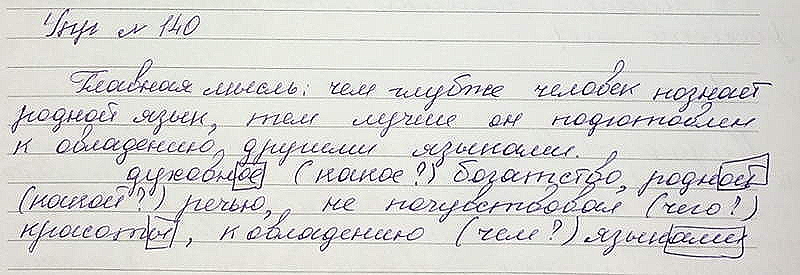 Упр № 140
Главная мысль: чем глубже человек познает
родной язык, тем лучше он подготовлен
к овладению другими языками.
духовное (какое?) богатство, родной
(какой?) речью, не почувствовал (чего?)
красоты, к овладению (чем?) языками